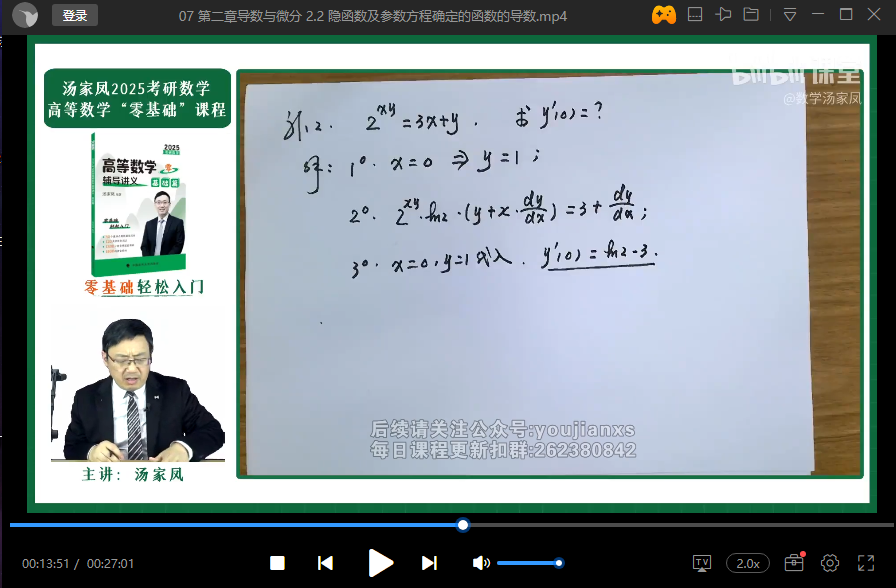 登录
07 第二章导数与微分 2.2 隐函数及参数方程确定的函数的导数.mp4
汤家凤2025考研数学
高等数学“零基础”课程
2025
高等数学
辅导讲义
基础篇
零基础
轻松入门
零基础轻松入门
主讲：汤家凤
bilibili 课堂
@数学汤家凤
例2. 2^{xy}=3x+y. 求 y'(0)=?
解: 1°. x=0 ⇒ y=1;
2°. 2^{xy}·ln2·(y+x·dy/dx)=3+dy/dx;
3°. x=0, y=1代入. y'(0)=ln2-3.
后续请关注公众号:youjianxs
每日课程更新扣群:262380842
00:13:51 / 00:27:01
TV
2.0x